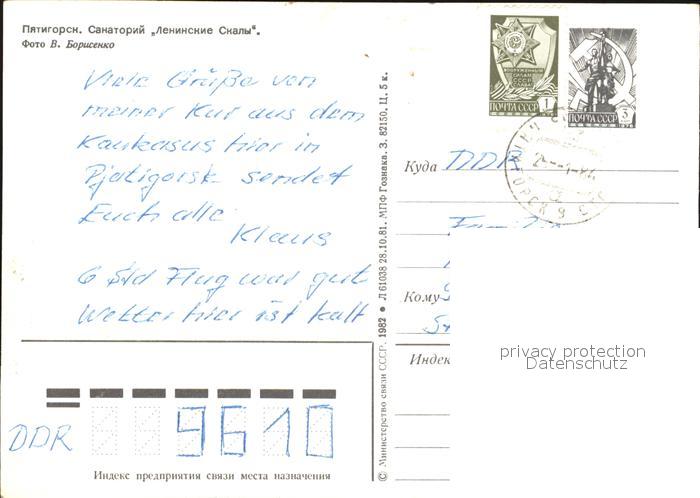 Пятигорск. Санаторий „Ленинские Скалы“.
Фото В. Борисенко
Viele Grüße von
meiner Kur aus dem
Kaukasus hier in
Pjatigorsk sendet
Euch alle
Klaus
6 Std Flug war gut
Wetter hier ist kalt
DDR
9610
Индекс предприятия связи места назначения
© Министерство связи СССР. 1982 ● Л 61038 28.10.81. МПФ Гознака. З. 82150. Ц. 5 к.
ВООРУЖЕННЫМ СИЛАМ СССР
ПОЧТА СССР 1
ПОЧТА СССР 3
Куда DDR
Кому
Индекс
privacy protection
Datenschutz